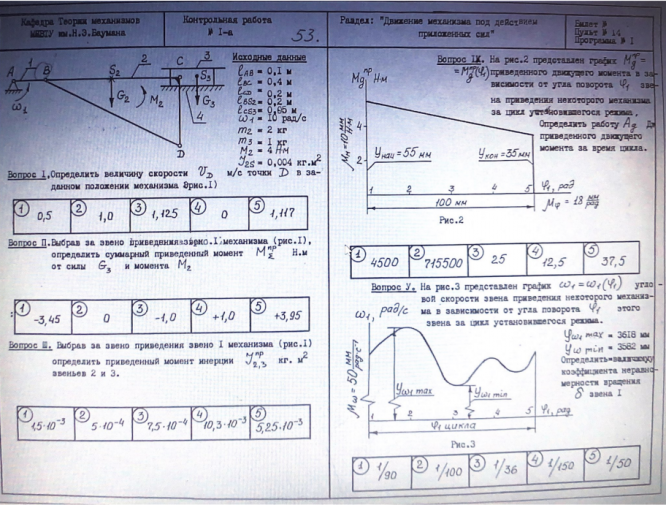 Кафедра Теории механизмов
МВТУ им.Н.Э.Баумана
Контрольная работа
№ I-а
53.
Раздел: "Движение механизма под действием
приложенных сил"
Билет №
Пульт № 14
Программа № I
Исходные данные
l_AB = 0,1 м
l_BC = 0,4 м
l_CD = 0,2 м
l_BS2 = 0,2 м
l_CS3 = 0,05 м
ω1 = 10 рад/с
m2 = 2 кг
m3 = 1 кг
M2 = 4 Нм
J2S = 0,004 кг.м²
A 1 B S2 2 C 3 S3
ω1 G2 M2 G3 4
D
Вопрос I. Определить величину скорости V_D м/с точки D в за-
данном положении механизма (рис.I)
1 0,5 2 1,0 3 1,125 4 0 5 1,117
Вопрос П. Выбрав за звено приведения звено I механизма (рис.I),
определить суммарный приведенный момент M_Σ^пр Н.м
от силы G3 и момента M2
1 -3,45 2 0 3 -1,0 4 +1,0 5 +3,95
Вопрос Ш. Выбрав за звено приведения звено I механизма (рис.I)
определить приведенный момент инерции J_2,3^пр кг. м²
звеньев 2 и 3.
1 1,5·10⁻³ 2 5·10⁻⁴ 3 7,5·10⁻⁴ 4 10,3·10⁻³ 5 5,25·10⁻³
Вопрос IУ. На рис.2 представлен график
приведенного движущего момента в за-
висимости от угла поворота φ1 зве-
на приведения некоторого механизма
за цикл установившегося режима.
Определить работу A_д
приведенного движущего
момента за время цикла.
M_д^пр Н·м
4
2
y_нач = 55 мм y_кон = 35 мм
1 2 3 4 5 φ1, рад
100 мм
Рис.2
1 4500 2 715500 3 25 4 12,5 5 37,5
Вопрос У. На рис.3 представлен график ω1 = ω1(φ1) угло-
вой скорости звена приведения некоторого механиз-
ма в зависимости от угла поворота φ1 этого
звена за цикл установившегося режима.
y_ω1 max = 3618 мм
y_ω min = 3582 мм
Определить величину
коэффициента неравно-
мерности вращения
δ звена I
ω1, рад/с
y_ω1 max y_ω1 min
1 2 3 4 5 φ1, рад
φ1 цикла
Рис.3
1 1/90 2 1/100 3 1/36 4 1/150 5 1/50